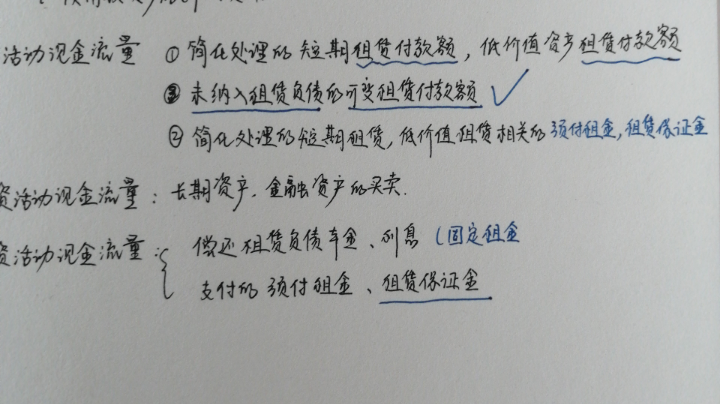 活动现金流量 ① 简化处理的短期租赁付款额，低价值资产租赁付款额
③ 未纳入租赁负债的可变租赁付款额 ✓
② 简化处理的短期租赁，低价值租赁相关的预付租金，租赁保证金
资活动现金流量：长期资产、金融资产的买卖.
资活动现金流量：{ 偿还租赁负债本金、利息（固定租金
支付的预付租金、租赁保证金